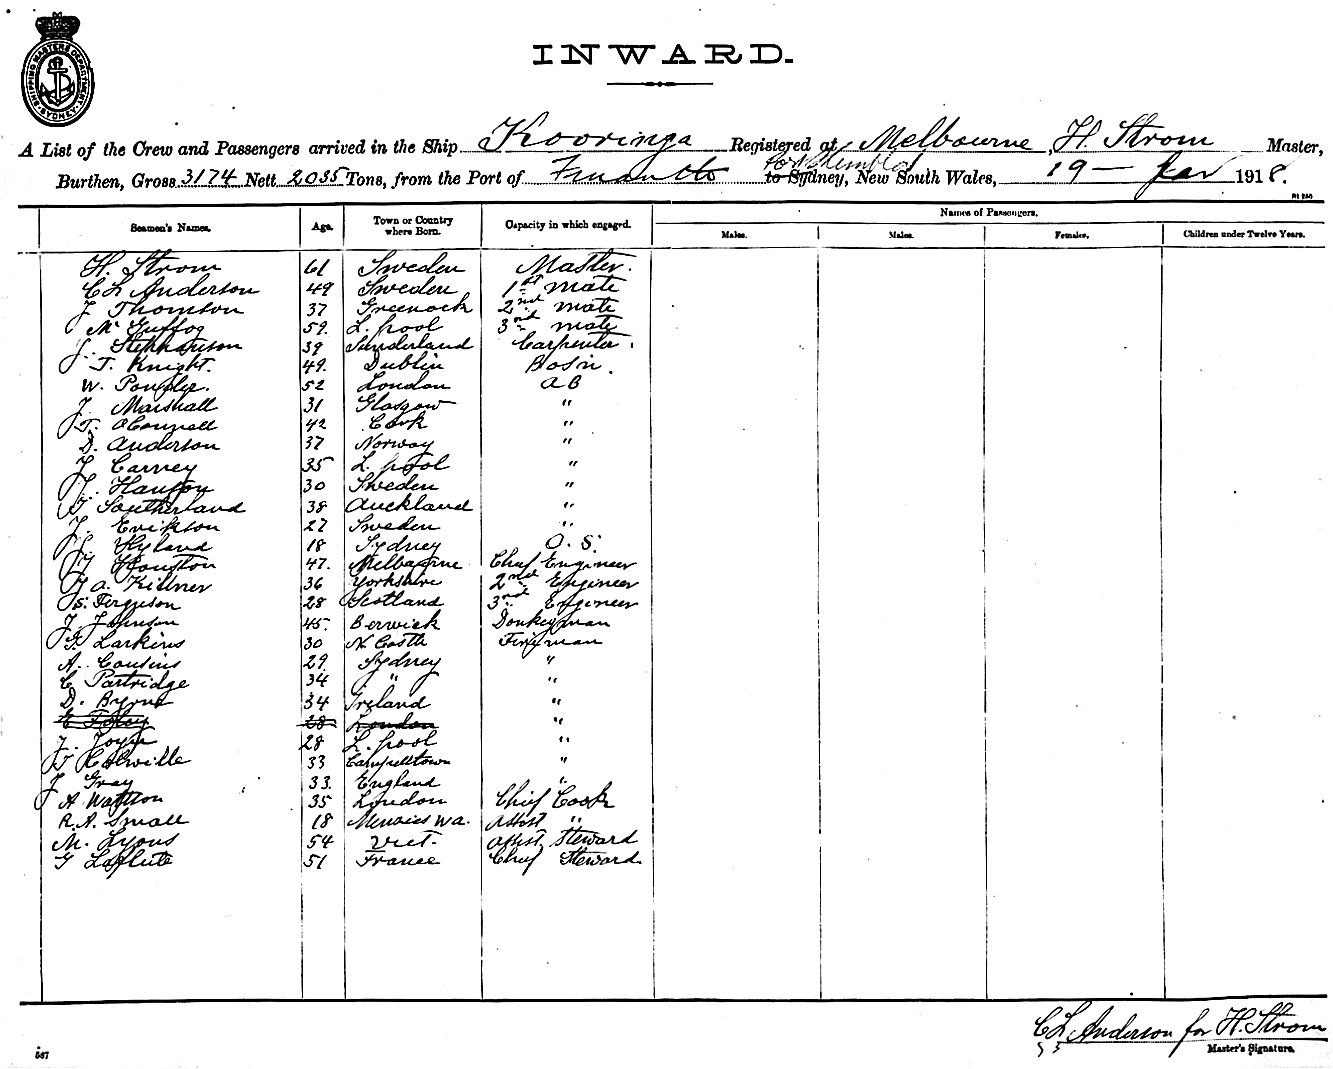 SHIPPING MASTERS DEPARTMENT SYDNEY
INWARD.
A List of the Crew and Passengers arrived in the Ship Kooringa Registered at Melbourne, H. Strom Master,
Port Kembla
Burthen, Gross 3174 Nett 2035 Tons, from the Port of to Sydney, New South Wales, 19 — Jan 1918.
Names of Passengers.
Seamen's Names. Age. Town or Country where Born. Capacity in which engaged. Males. Males. Females. Children under Twelve Years.
H. Strom 61 Sweden Master.
CL Anderson 49 Sweden 1st mate
J Thomson 37 Greenock 2nd mate
Mc Guffog 59. L. pool 3rd mate
J. Stephenson 39 Sunderland Carpenter.
T. Knight. 49. Dublin Bosn.
W. 52 London A B
J. Marshall 31 Glasgow "
T. OConnell 42 Cork "
D. Anderson 37 Norway "
J Carney 35 L. pool "
J. Hanson 30 Sweden "
Southerland 38 Auckland "
J. Erikson 27 Sweden "
J. Hyland 18 Sydney O. S.
J Houston 47. Melbourne Chief Engineer
J A. Killner 36 Yorkshire 2nd Engineer
S. Ferguson 28 Scotland 3rd Engineer
J. Johnson 45. Berwick Donkeyman
F. Larkins 30 N. Castle Fireman
A. Cousins 29 Sydney "
C Partridge 34 " "
D. Byrne 34 Ireland "
E Foley 28 London "
J. Joyce 28 L. pool "
Colville 33 Campelltown "
J Gray 33. England "
A Watson 35 London Chief Cook
R. A. Small 18 Menzies W.A. Assist "
M. Lyons 54 Vict. Assist. Steward
G Laflute 51 France Chief Steward
CL Anderson for H. Strom
Master's Signature.
537